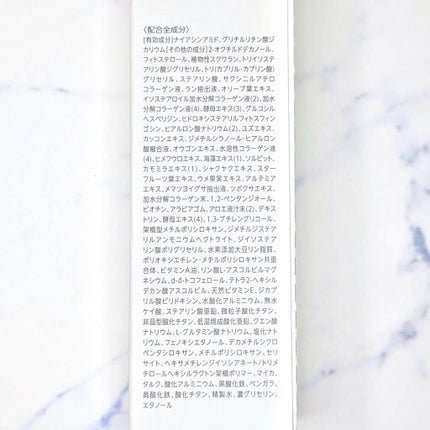 〈配合全成分〉
[有効成分]ナイアシンアミド、グリチルリチン酸ジ
カリウム[その他の成分]2-オクチルドデカノール、
フィトステロール、植物性スクワラン、トリイソステ
アリン酸ジグリセリル、トリ(カプリル・カプリン酸)
グリセリル、ステアリン酸、サクシニルアテロ
コラーゲン液、ラン抽出液、オリーブ葉エキス、
イソステアロイル加水分解コラーゲン液(2)、加水
分解コラーゲン液(4)、酵母エキス(3)、グルコシル
ヘスペリジン、ヒドロキシステアリルフィトスフィン
ゴシン、ヒアルロン酸ナトリウム(2)、ユズエキス、
カッコンエキス、ジメチルシラノール・ヒアルロン
酸縮合液、オウゴンエキス、水溶性コラーゲン液
(4)、ヒメフウロエキス、海藻エキス(1)、ソルビット、
カモミラエキス(1)、シャクヤクエキス、スター
フルーツ葉エキス、ウメ果実エキス、アルテミア
エキス、メマツヨイグサ抽出液、ツボクサエキス、
加水分解コラーゲン末、1,2-ペンタンジオール、
ビオチン、アラビアゴム、アロエ液汁末(2)、デキス
トリン、酵母エキス(4)、1,3-ブチレングリコール、
架橋型メチルポリシロキサン、ジメチルジステア
リルアンモニウムヘクトライト、ジイソステアリ
ン酸ポリグリセリル、水素添加大豆リン脂質、
ポリオキシエチレン・メチルポリシロキサン共重
合体、ビタミンA油、リン酸L-アスコルビルマグ
ネシウム、d-δ-トコフェロール、テトラ2-ヘキシル
デカン酸アスコルビル、天然ビタミンE、ジカプ
リル酸ピリドキシン、水酸化アルミニウム、無水
ケイ酸、ステアリン酸亜鉛、微粒子酸化チタン、
非晶型酸化チタン、低温焼成酸化亜鉛、クエン酸
ナトリウム、L-グルタミン酸ナトリウム、塩化ナト
リウム、フェノキシエタノール、デカメチルシクロ
ペンタシロキサン、メチルポリシロキサン、セリ
サイト、ヘキサメチレンジイソシアネート/トリメ
チロールヘキシルラクトン架橋ポリマー、マイカ、
タルク、酸化アルミニウム、黒酸化鉄、ベンガラ、
黄酸化鉄、酸化チタン、精製水、濃グリセリン、
エタノール